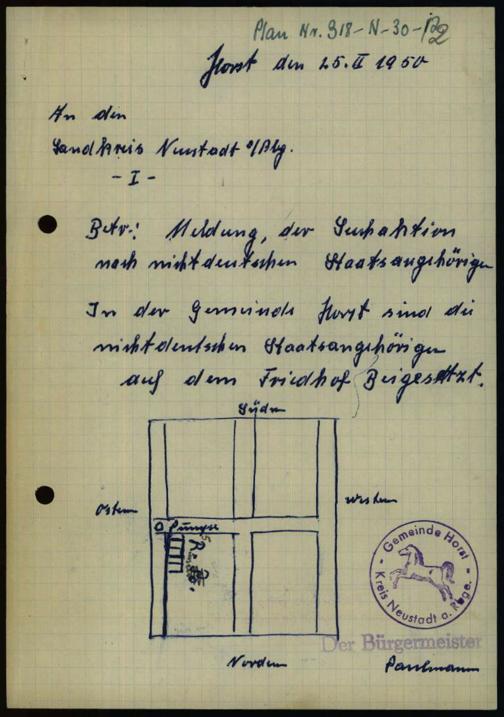 Plan Nr. 318-N-30-P2
Horst den 25. II 1950
An den
Landkreis Neustadt a/Rbg.
- I -
Betr: Meldung, der Suchaktion
nach nichtdeutschen Staatsangehörigen
In der Gemeinde Horst sind die
nichtdeutschen Staatsangehörigen
auf dem Friedhof Beigesetzt.
Süden
Osten
Westen
Pumpe
Gemeinde Horst
Kreis Neustadt a. Rbge.
Der Bürgermeister
Norden
Paulmann